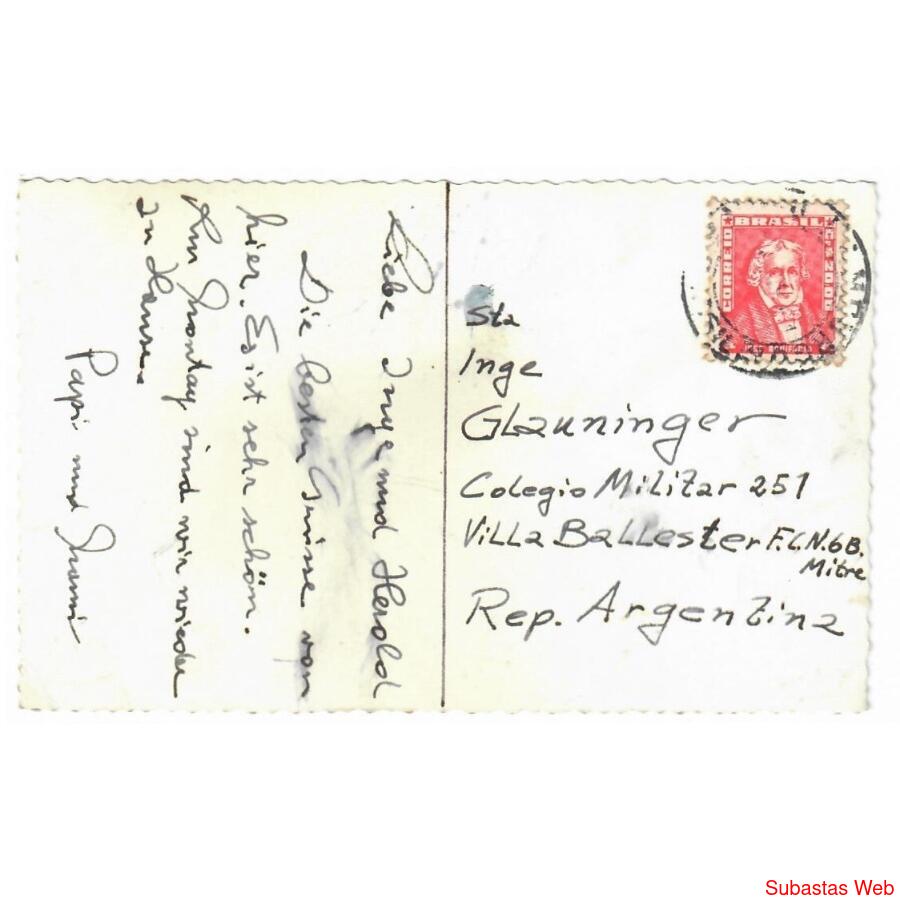 Liebe Inge und Herold
Die besten Grüsse von
hier. Es ist sehr schön.
Am Montag sind wir wieder
zu Hause
Papi und Mami
BRASIL
CORREIO
Cr$ 20,00
JOSÉ BONIFACIO
Sta
Inge
Glauninger
Colegio Militar 251
Villa Ballester F.C.N.G.B.
Mitre
Rep. Argentina
Subastas Web